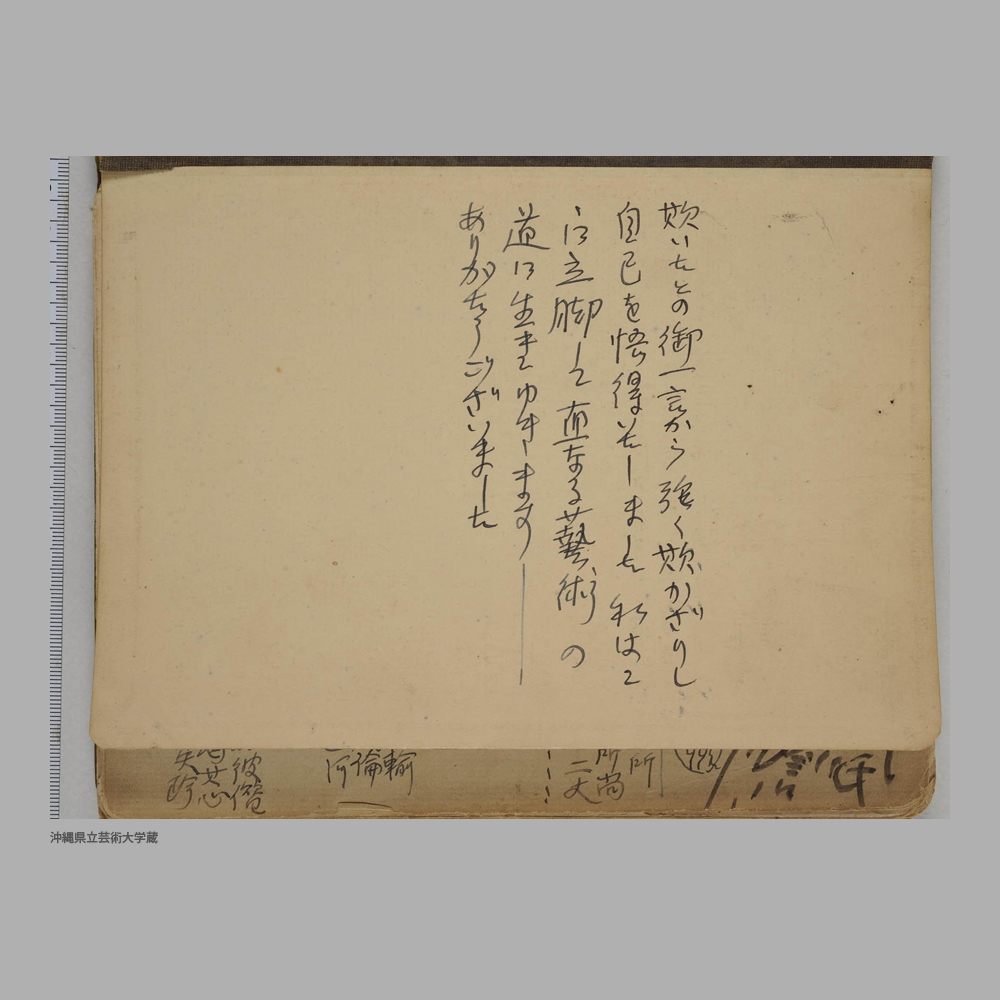 欺いたとの御一言から強く欺かざりし
自己を悟得いたしました 私はこ
こに立脚して直なる藝術の
道に生きてゆきます——
ありがたうございました
所
所尚
二丈
輸
倫
沖縄県立芸術大学蔵